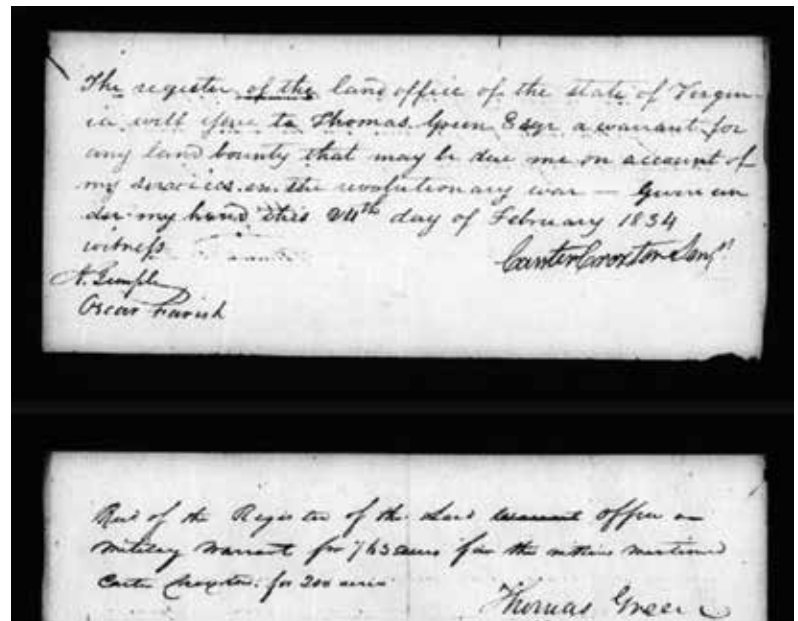 The register of the land office of the state of Virgin
ia will give to Thomas Green Esqr a warrant for
any land bounty that may be due me on account of
my services in the revolutionary war — Given un
der my hand this 24th day of February 1834
witness
Carter Croxton Senr
Oscar Parish
Recd of the Register of the Land warrant office a
military warrant for acres for the within mentioned
Carter Croxton for 200 acres
Thomas Green